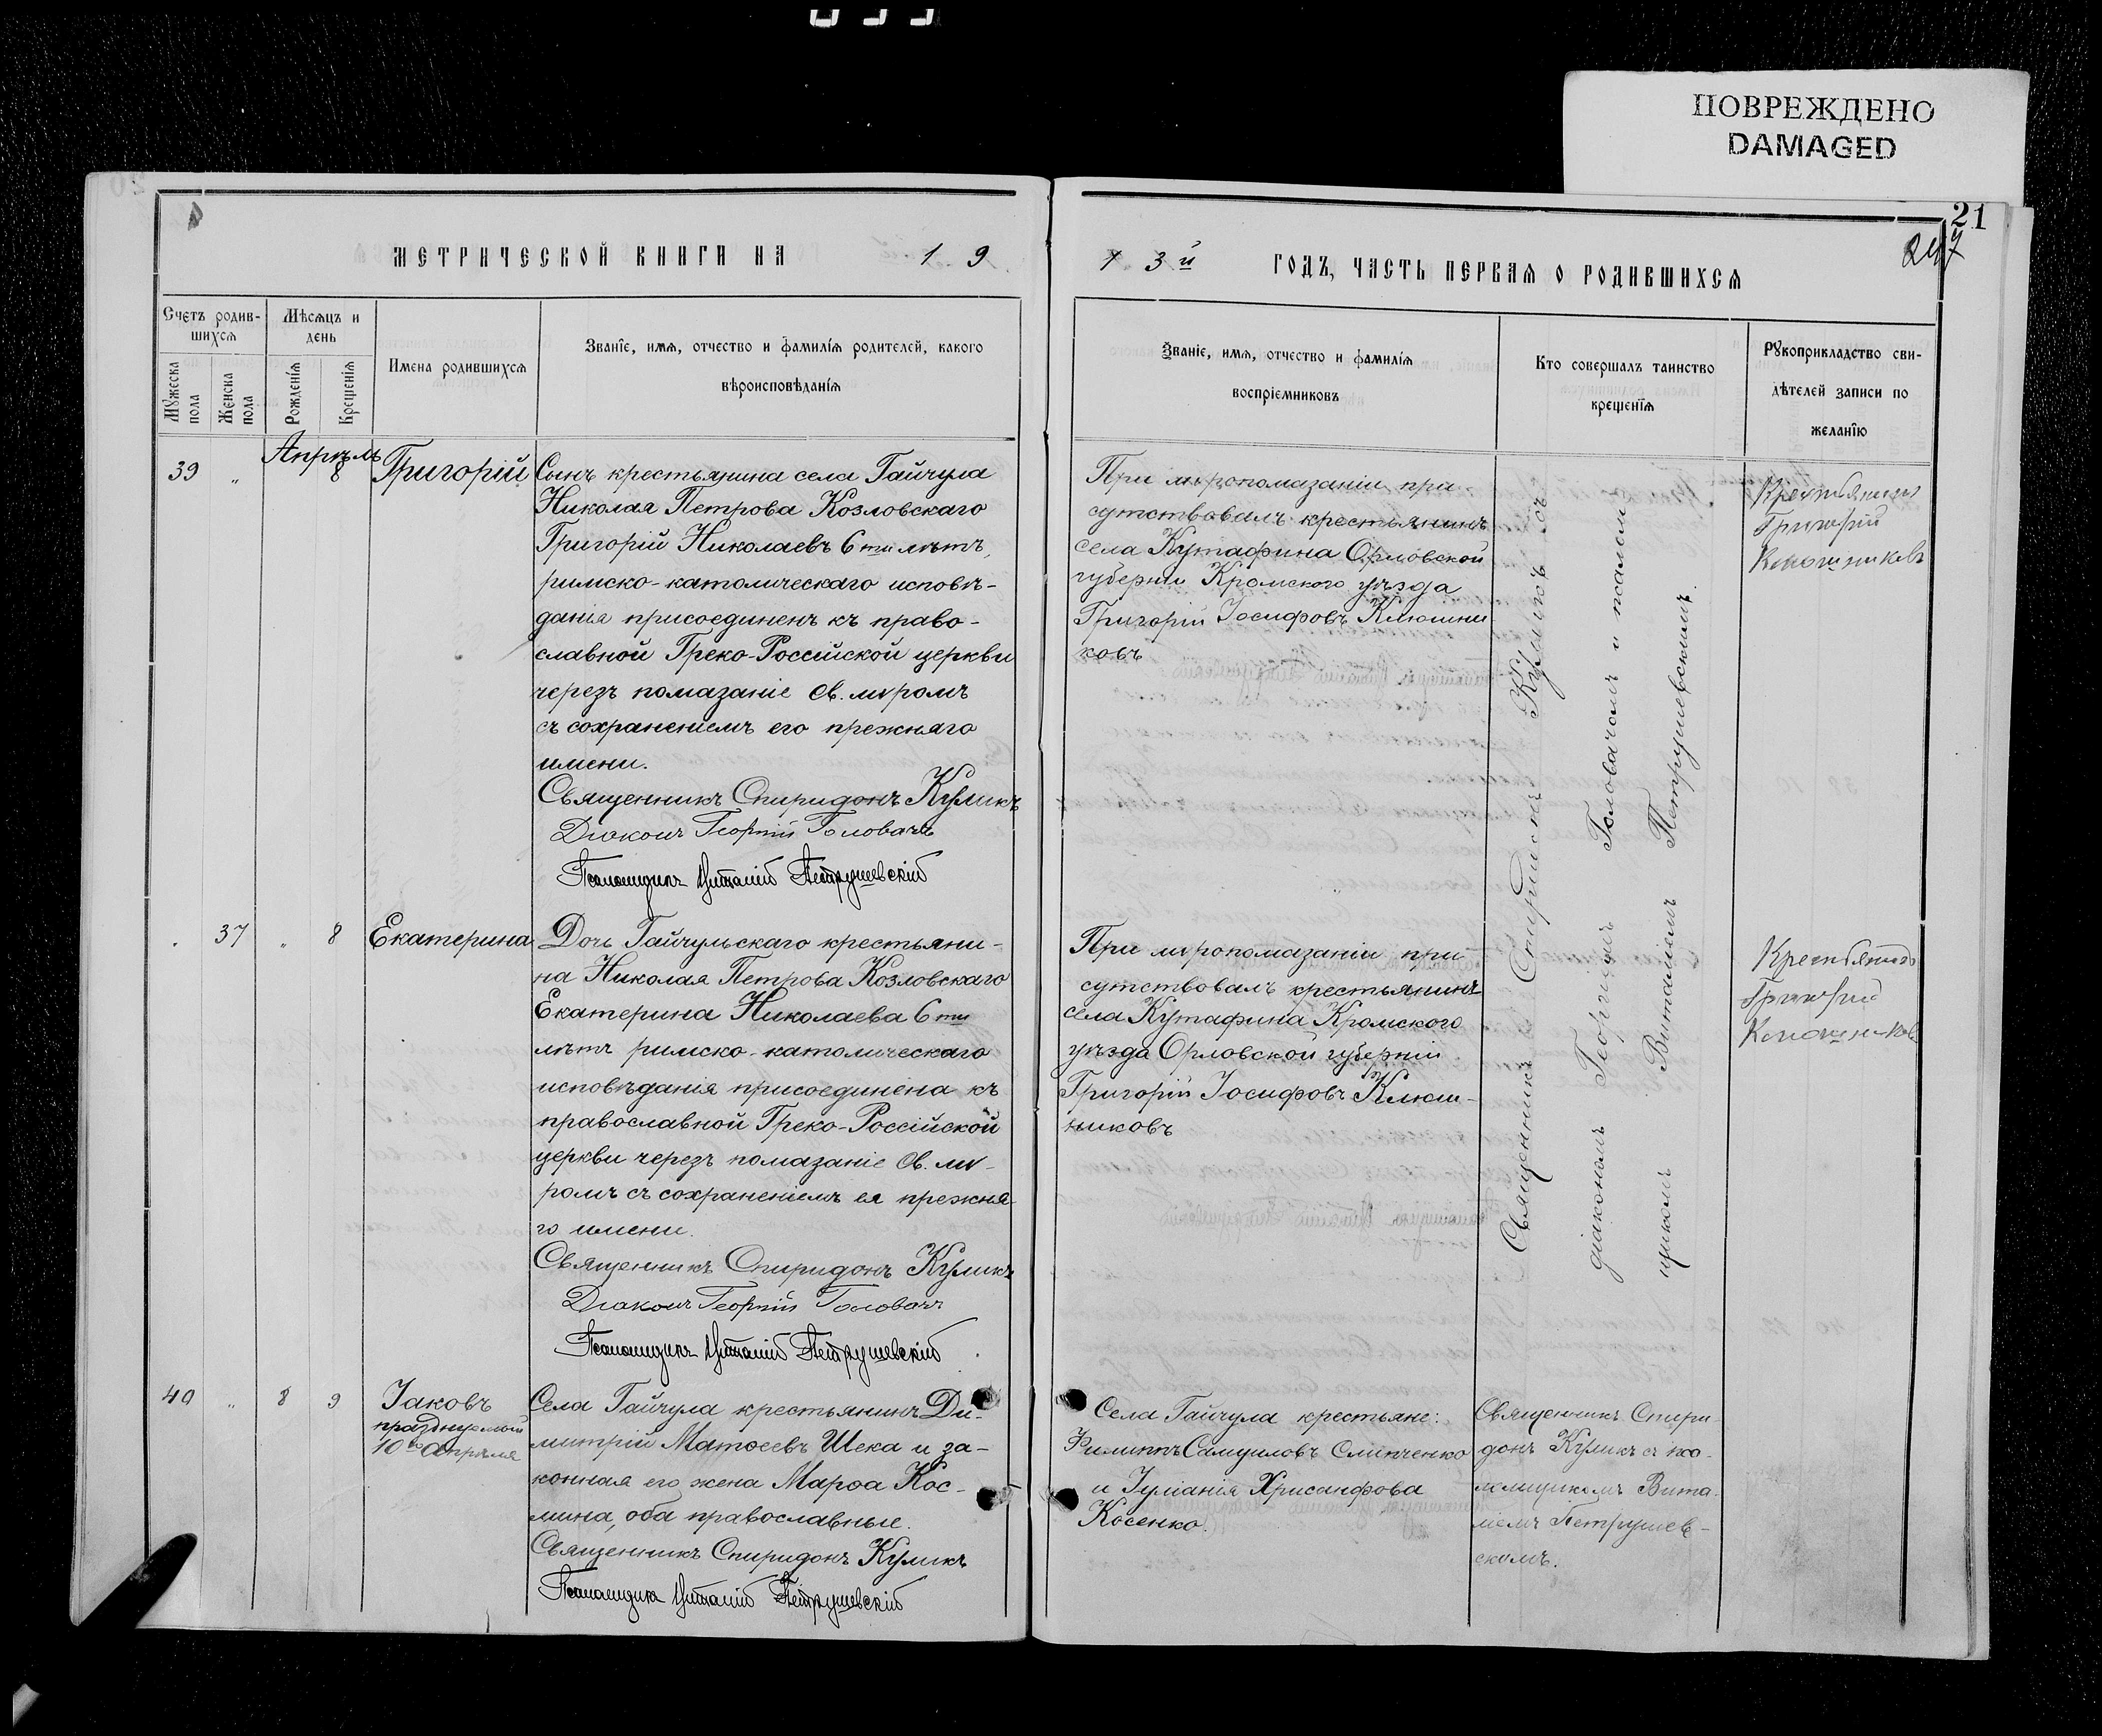 ПОВРЕЖДЕНО
DAMAGED
21
247
МЕТРИЧЕСКОЙ КНИГИ НА 1 9
1 3й ГОДЪ, ЧАСТЬ ПЕРВАЯ О РОДИВШИХСЯ
Счетъ родив-
шихся
Мужеска
пола
Женска
пола
Мѣсяцъ и
день
Рожденія
Крещенія
Имена родившихся
Званіе, имя, отчество и фамилія родителей, какого
вѣроисповѣданія
Званіе, имя, отчество и фамилія
воспріемниковъ
Кто совершалъ таинство
крещенія
Рукоприкладство сви-
дѣтелей записи по
желанію
Апрѣль
39 " 8 Григорій
Сынъ крестьянина села Гайчула
Николая Петрова Козловскаго
Григорій Николаевъ 6ти лѣтъ,
римско-католическаго исповѣ-
данія присоединенъ къ право-
славной Греко-Россійской церкви
черезъ помазаніе Св. мѵромъ
съ сохраненіемъ его прежняго
имени.
Священникъ Спиридонъ Куликъ
Діаконъ Георгій Головачъ
Псаломщикъ Виталій Петрушевскій
При мѵропомазаніи при
сутствовалъ крестьянинъ
села Кутафина Орловской
губерніи Кромского уѣзда
Григорій Іосифовъ Клюшни
ковъ
Священникъ Спиридонъ Куликъ съ
діакономъ Георгіемъ Головачомъ и псалом
щикомъ Виталіемъ Петрушевскимъ.
Крестьянинъ
Григорій
Клюшниковъ
" 37 " 8 Екатерина
Дочь Гайчульскаго крестьяни-
на Николая Петрова Козловскаго
Екатерина Николаева 6ти
лѣтъ римско-католическаго
исповѣданія присоединена къ
православной Греко-Россійской
церкви черезъ помазаніе Св. мѵ-
ромъ съ сохраненіемъ ея прежня-
го имени.
Священникъ Спиридонъ Куликъ
Діаконъ Георгій Головачъ
Псаломщикъ Виталій Петрушевскій
При мѵропомазаніи при
сутствовалъ крестьянинъ
села Кутафина Кромского
уѣзда Орловской губерніи
Григорій Іосифовъ Клюш-
никовъ
Крестьянинъ
Григорий
Клюшниковъ
40 " 8 9 Іаковъ
празднуемый
10го Апрѣля
Села Гайчула крестьянинъ Ди-
митрій Матѳеевъ Шека и за-
конная его жена Марѳа Кос-
мина, оба православные.
Священникъ Спиридонъ Куликъ
Псаломщикъ Виталій Петрушевскій
Села Гайчула крестьяне:
Филиппъ Самуиловъ Слипченко
и Іуліанія Хрисанфова
Косенко.
Священникъ Спири-
донъ Куликъ съ пса-
ломщикомъ Вита-
ліемъ Петрушев-
скимъ.